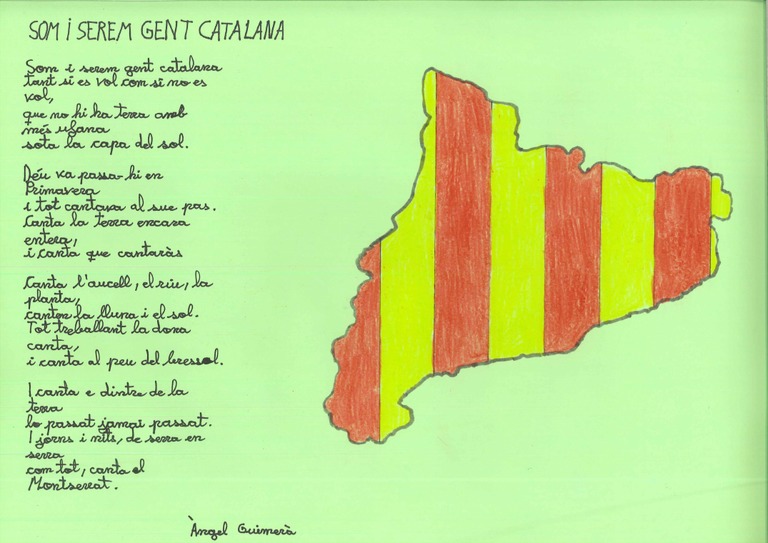 SOM I SEREM GENT CATALANA
Som i serem gent catalana
tant si es vol com si no es
vol,
que no hi ha terra amb
més ufana
sota la capa del sol.
Déu va passa-hi en
Primavera
i tot cantava al sue pas.
Canta la terra encara
entera,
i canta que cantaràs
Canta l'aucell, el riu, la
planta,
canten la lluna i el sol.
Tot treballant la dona
canta,
i canta al peu del bressol.
I canta e dintre de la
terra
lo passat jamai passat.
I jorns i nits, de serra en
serra
com tot, canta el
Montserrat.
Àngel Guimerà